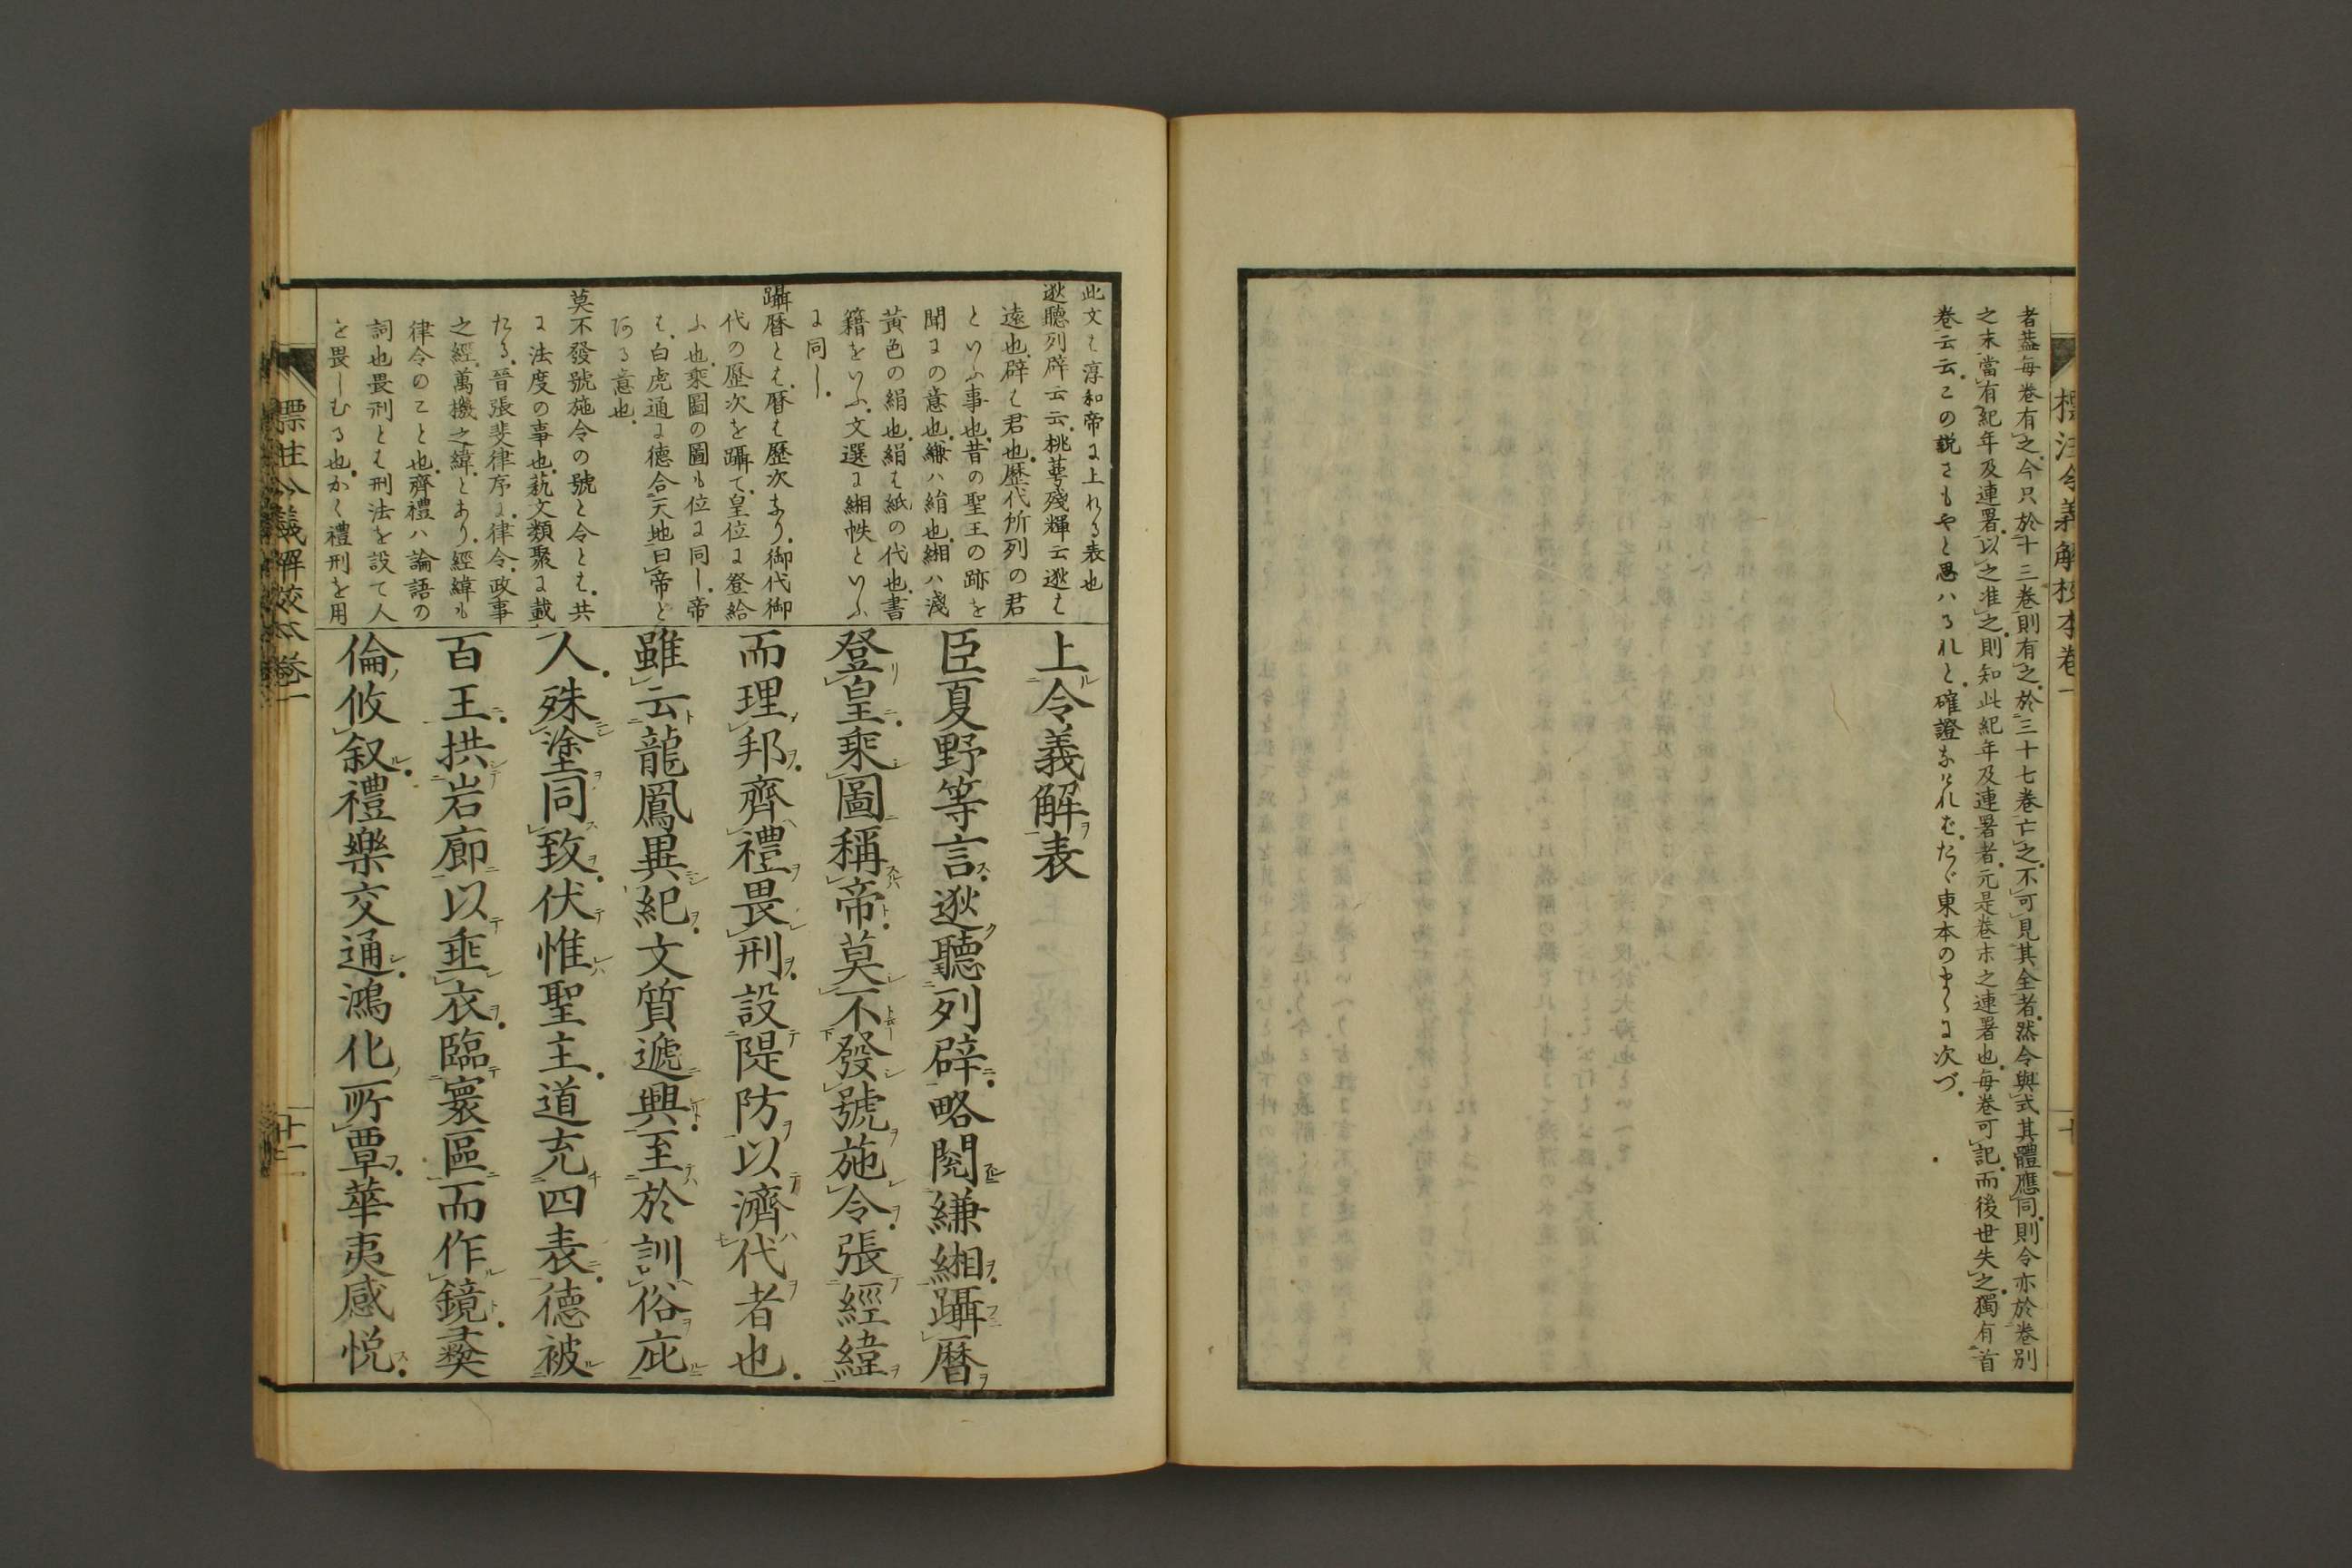 者蓋毎卷有之今只於十三卷則有之於三十七卷亡之不可見其全者然令與式其體應同則令亦於卷別
之末當有紀年及連署以之准之則知此紀年及連署者元是卷末之連署也毎卷可記而後世失之獨有首
卷云云この説さもやと思ハるれと確證なけれは、たゞ東本のまゝに次づ
標注令義解挍本卷一
此文は淳和帝に上れる表也
逖聽列辟云云桃蕚殘輝云逖は
遠也辟は君也歴代所列の君
といふ事也昔の聖王の跡を
聞にの意也縑ハ絹也緗ハ淺
黄色の絹也絹は紙の代也書
籍をいふ文選に緗帙といふ
に同し
躡暦とは暦は歴次なり御代御
代の歴次を躡て皇位に登給
ふ也乘圖の圖も位に同し帝
は白虎通に德合天地曰帝と
ある意也
莫不發號施令の號と令とは共
に法度の事也藝文類聚に載
たる晉張斐律序に律令政事
之經萬機之緯とあり經緯も
律令のこと也齊禮ハ論語の
詞也畏刑とは刑法を設て人
を畏しむる也かく禮刑を用
上令義解表
臣夏野等言逖聽列辟略閲縑緗躡暦
登皇乘圖稱帝莫不發號施令張經緯
而理邦齊禮畏刑設隄防以濟代者也
雖云龍鳳異紀文質遞興至於訓俗庇
人殊塗同致伏惟聖主道充四表德被
百王拱岩廊以垂衣臨寰區而作鏡彛
倫攸叙禮樂交通鴻化所覃華夷感悦
標注令義解挍本卷一
十二